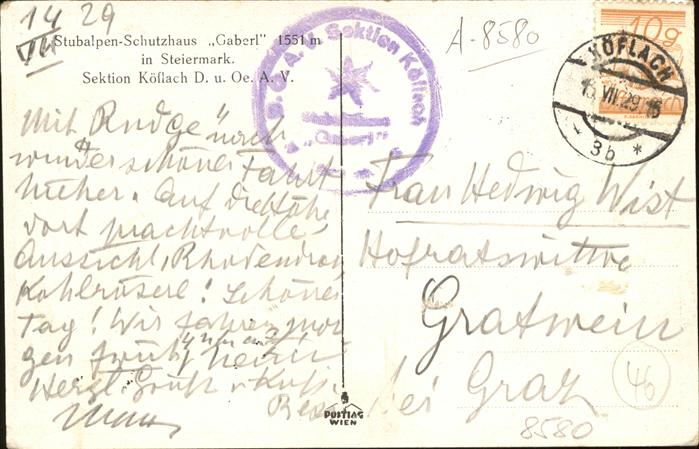 14 29
VII
Stubalpen-Schutzhaus „Gaberl" 1551 m
in Steiermark.
Sektion Köflach D. u. Oe. A. V.
Sektion Köflach
„Gaberl"
A-8580
10g
KÖFLACH
15.VII.29
3b *
Mit Rudge nach
wunderschöner Fahrt
hieher. Auf die Höhe
dort prachtvolle
Aussicht, Rhododendron,
Kohlröserl! Schöner
Tag! Wir fahren mor
gen früh
Herzl. Gruß u. Kuß
Frau Hedwig Wist
Hofratswitwe
Gratwein
bei Graz
46
8580
POSTIAG
WIEN